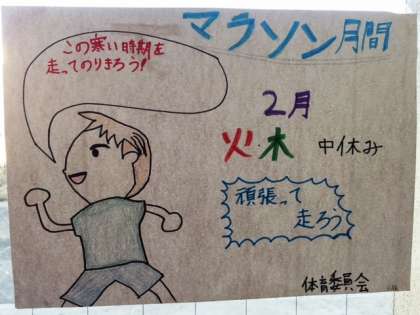 マラソン月間
この寒い時期を
走ってのりきろう!
2月
火・木 中休み
頑張って
走ろう
体育委員会